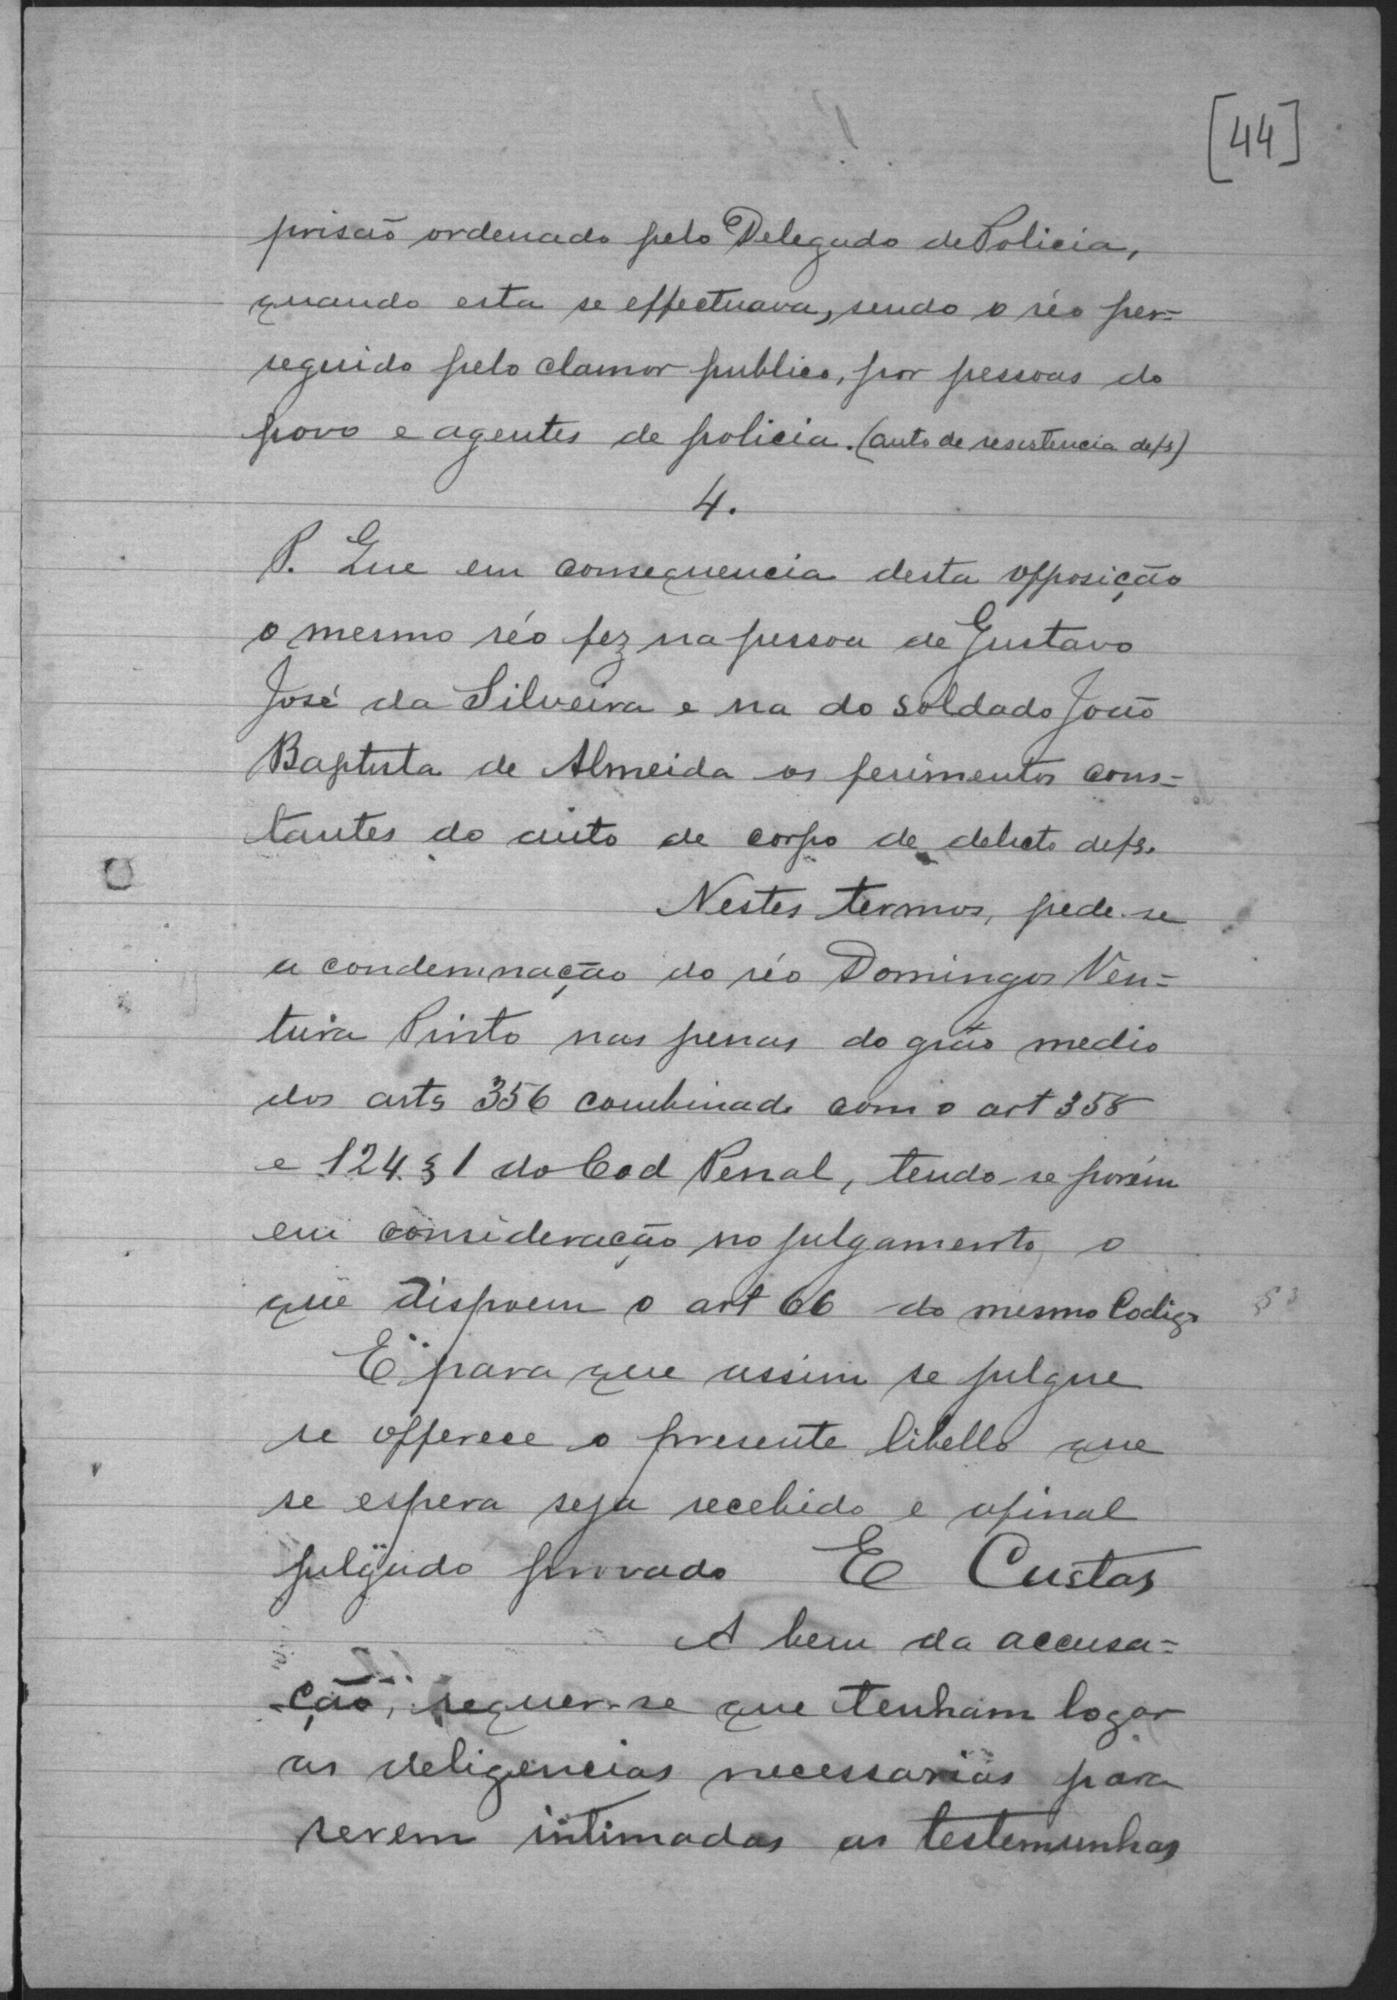 [44]
prisão ordenado pelo Delegado de Policia,
quando esta se effectuava, sendo o réo per=
seguido pelo clamor publico, por pessoas do
povo e agentes de policia. (auto de resistencia defs)
4.
P. Que em consequencia desta opposição
o mesmo réo fez na pessoa de Gustavo
José da Silveira e na do soldado João
Baptista de Almeida os ferimentos cons=
tantes do auto de corpo de delicto defs.
Nestes termos, pede-se
a condemnação do réo Domingos Ven=
tura Pinto nas penas do gráo medio
dos arts 356 combinado com o art 358
e 124 § 1 do Cod Penal, tendo-se porém
em consideração no julgamento o
que dispoem o art 66 do mesmo Codigo
E para que assim se julgue
se offerece o presente libello que
se espera seja recebido e afinal
julgado provado E Custas
A bem da accusa=
ção, requer-se que tenham logar
as deligencias necessarias para
serem intimadas as testemunhas